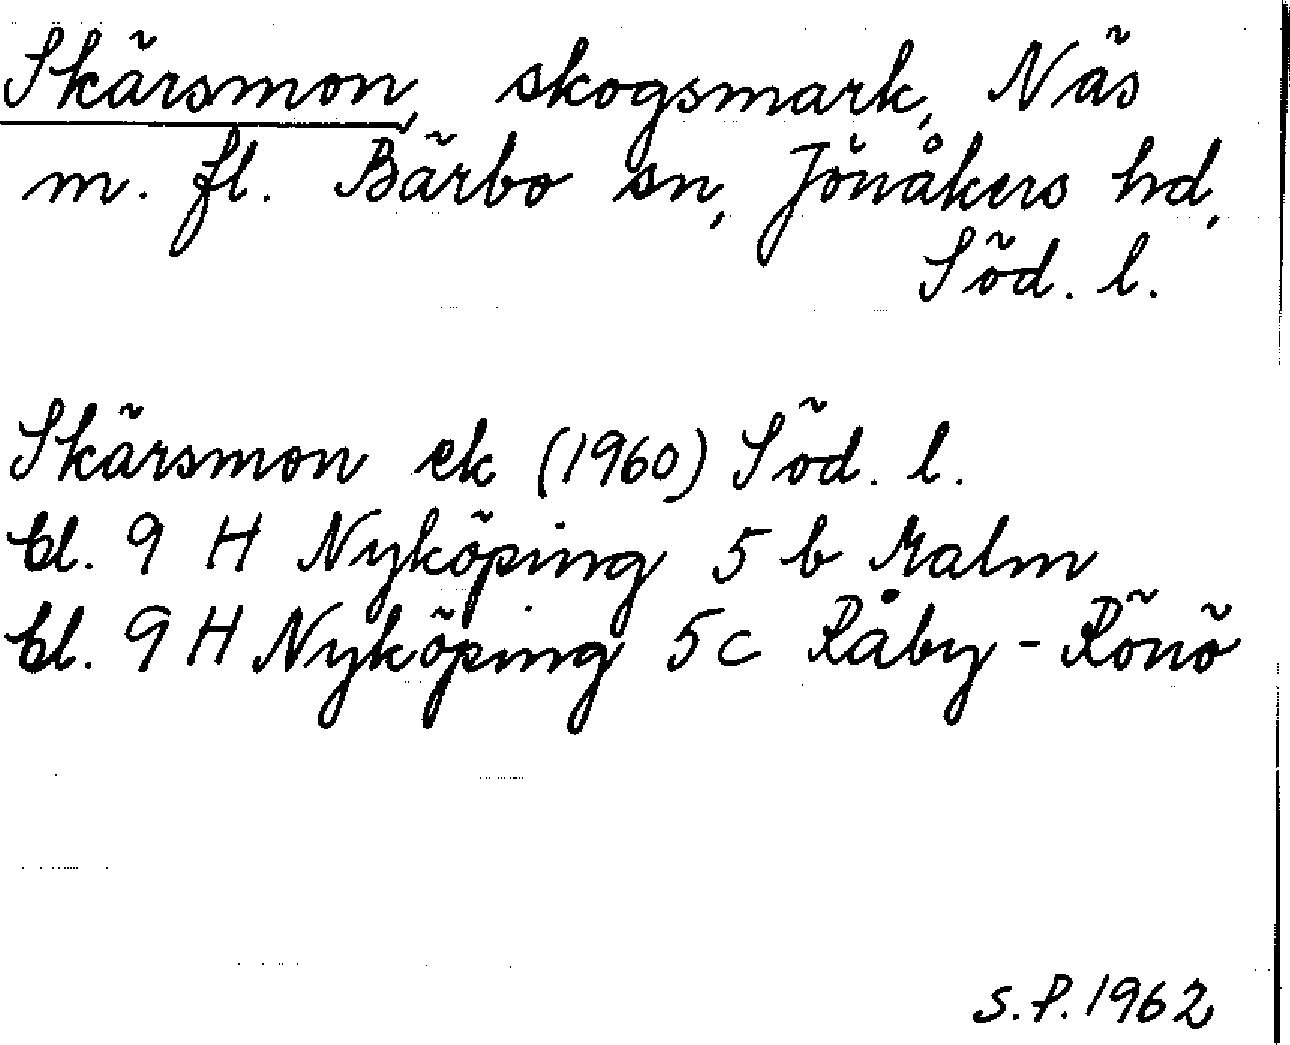 Skärsmon, skogsmark, Näs
m. fl. Bärbo sn, Jönåkers hd,
Söd. l.
Skärsmon ek (1960) Söd. l.
bl. 9 H Nyköping 5 b Malm
bl. 9 H Nyköping 5 c Råby-Rönö
S.P. 1962